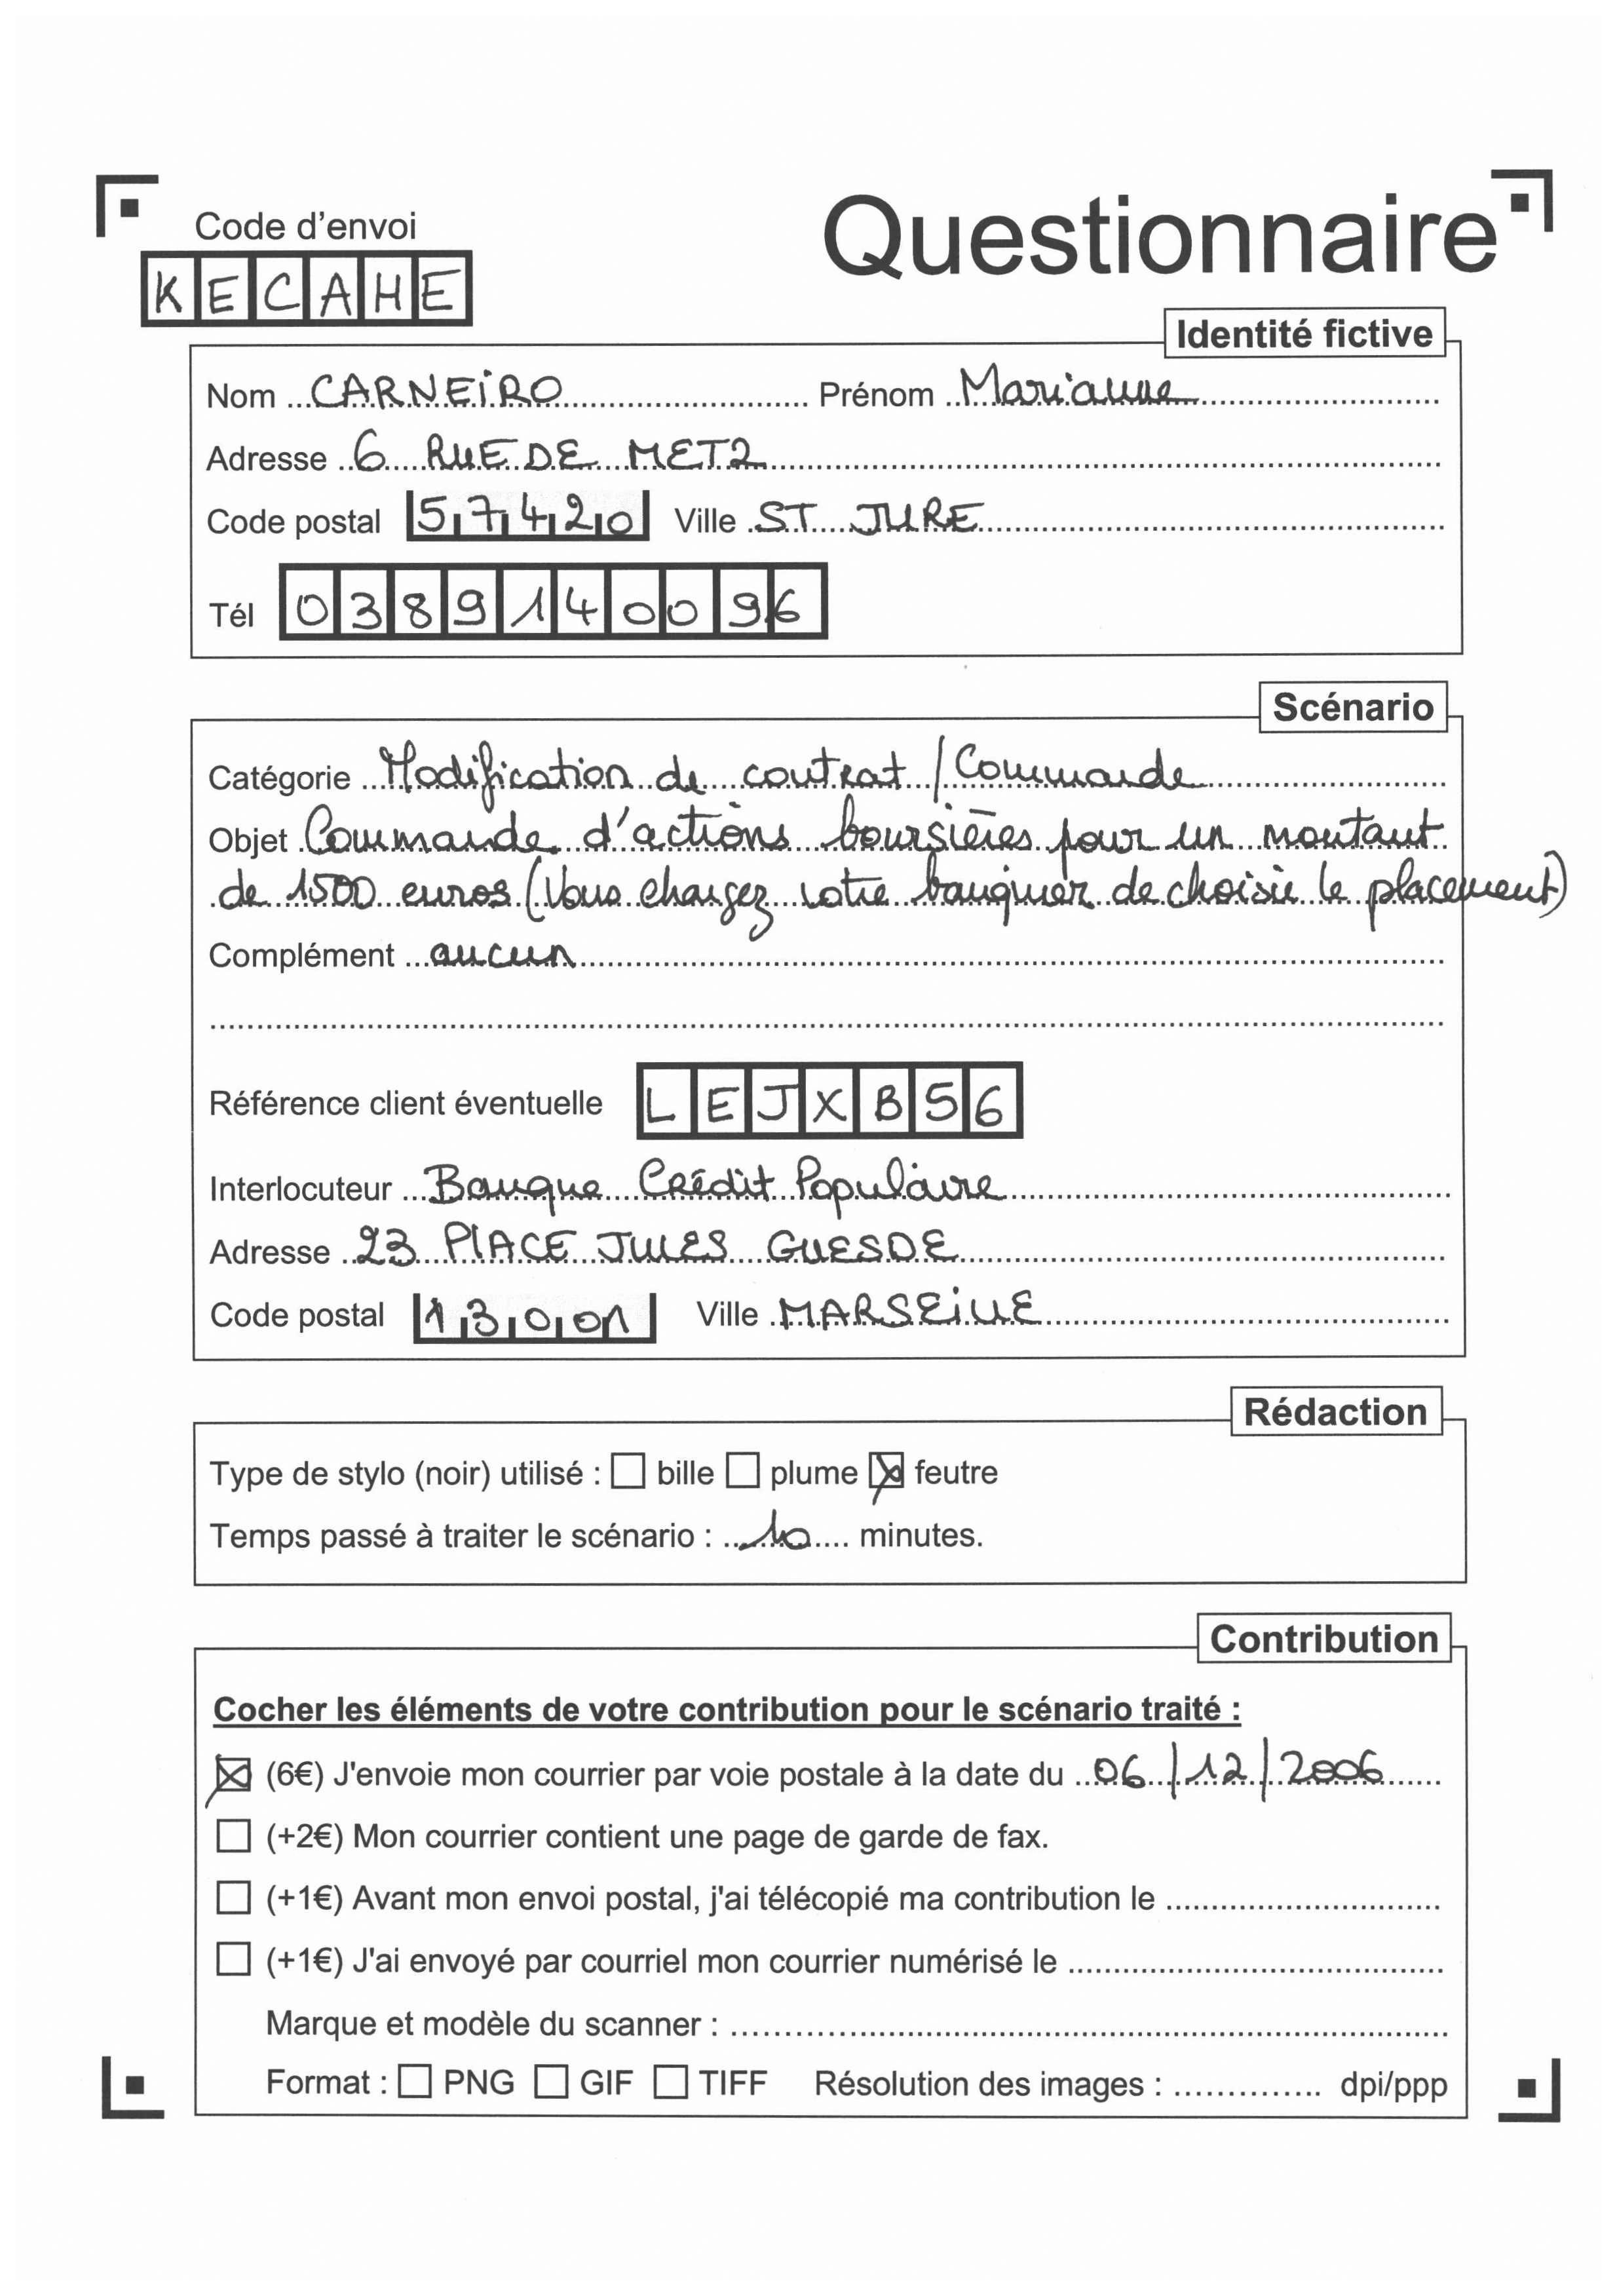 Code d'envoi
Questionnaire
KECAHE
Identité fictive
Nom CARNEIRO Prénom Marianne
Adresse 6 RUE DE METZ
Code postal 57420 Ville ST JURE
Tél 0389140096
Scénario
Catégorie Modification de contrat / Commande
Objet Commande d'actions boursières pour un montant
de 1500 euros (Vous chargez votre banquier de choisir le placement)
Complément aucun
Référence client éventuelle LEJXB56
Interlocuteur Banque Crédit Populaire
Adresse 23 PLACE JULES GUESDE
Code postal 13001 Ville MARSEILLE
Rédaction
Type de stylo (noir) utilisé : bille plume feutre
Temps passé à traiter le scénario : 10 minutes.
Contribution
Cocher les éléments de votre contribution pour le scénario traité :
(6€) J'envoie mon courrier par voie postale à la date du 06/12/2006
(+2€) Mon courrier contient une page de garde de fax.
(+1€) Avant mon envoi postal, j'ai télécopié ma contribution le
(+1€) J'ai envoyé par courriel mon courrier numérisé le
Marque et modèle du scanner :
Format : PNG GIF TIFF Résolution des images : dpi/ppp